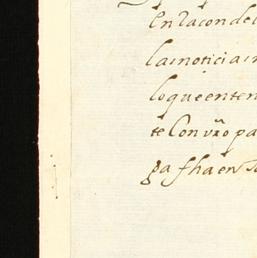 en la con de
la noticia
lo que enten
te con vr̃o pa
ga fha en